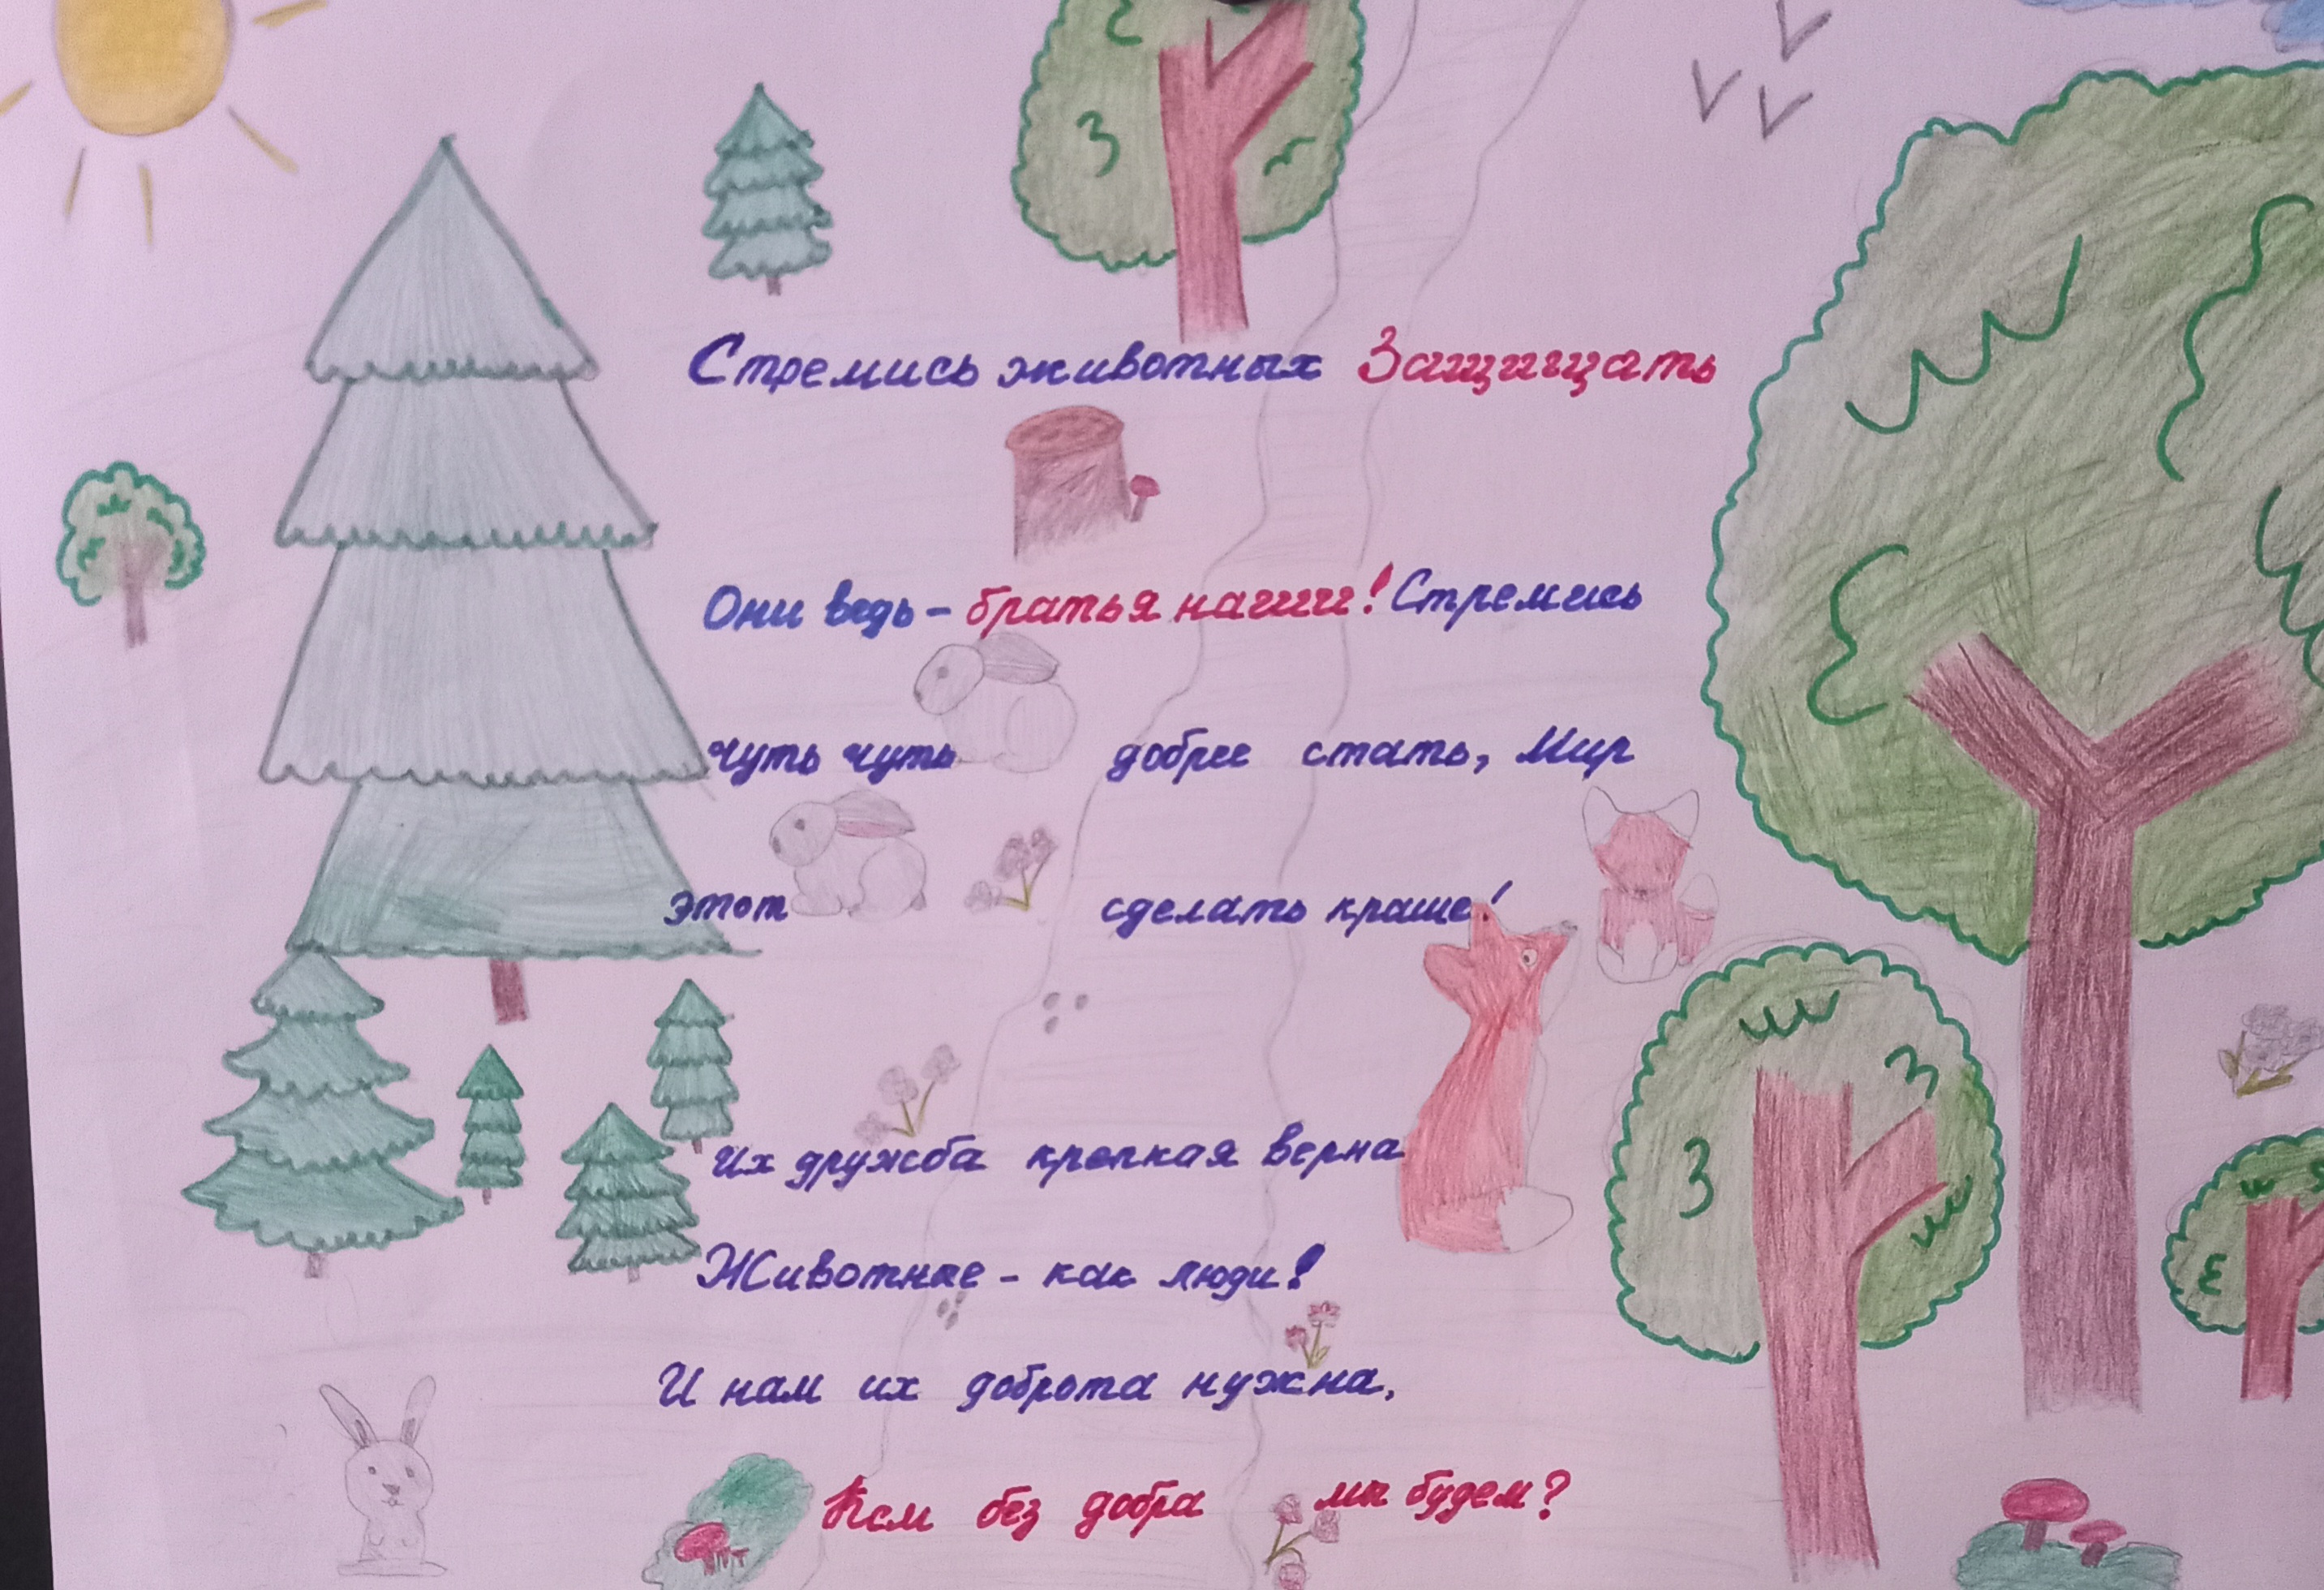 Стремись животных Защищать
Они ведь - братья наши! Стремись
чуть чуть добрее стать, Мир
этот сделать краше!
Их дружба крепкая верна
Животные - как люди!
И нам их доброта нужна,
Кем без добра мы будем?